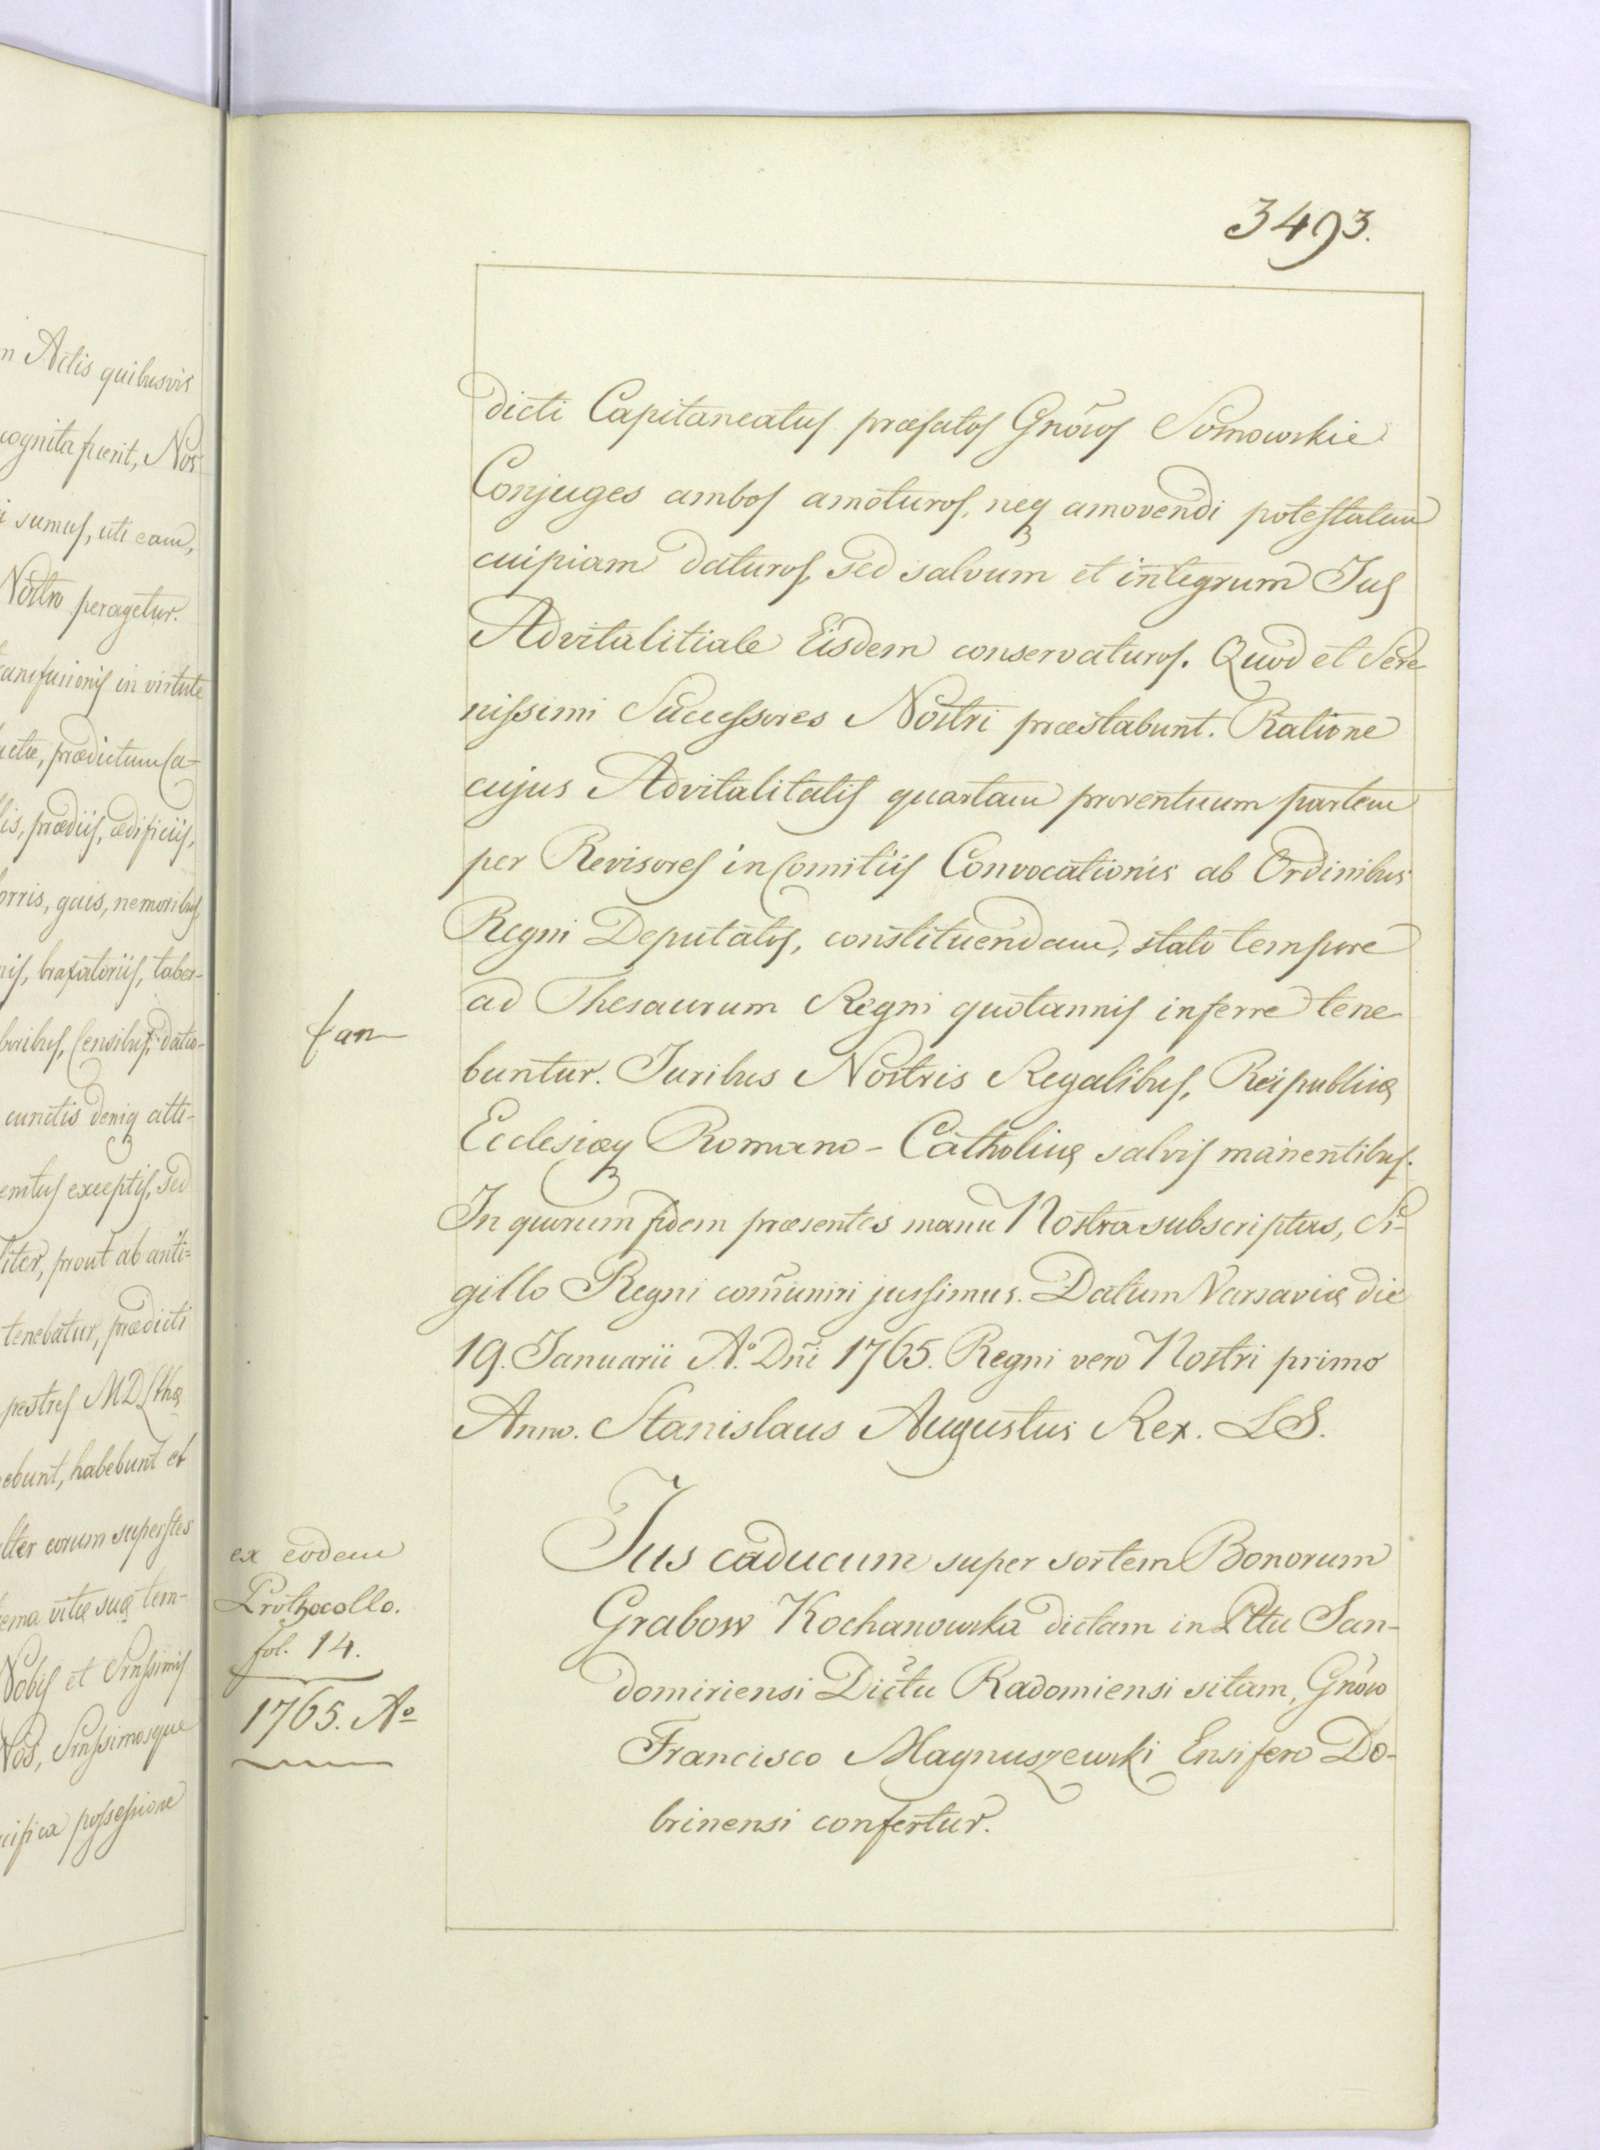 3493.
n Actis quibusvis
cognita fuerit, Nos
i sumus, uti eam,
Nostro peragetur.
ransfusionis in virtute
ctæ, prædictum Ca-
lis, prædiis, ædificiis,
orris, gais, nemoribus,
nis, braxatoriis, taber-
boribus, Censibus, datio-
cunctis deniq atti-
enitus exceptis, sed
liter, prout ab anti-
tenebatur, prædicti
pestres MDLthæ
ebunt, habebunt et
lter eorum superstes
rema vitæ suæ tem-
Nobis et Srnssimis
Nos, Srnssimosque
cifica possessione
dicti Capitaneatus præfatos Gnõsos Somowskie
Conjuges ambos amoturos, neq amovendi potestatem
cuipiam daturos, sed salvum et integrum Jus
Advitalitiale Eisdem conservaturos. Quod et Sere
nissimi Successores Nostri præstabunt. Ratione
cujus Advitalitatis quartam proventuum partem
per Revisores in Comitiis Convocationis ab Ordinibus
Regni Deputatos, constituendam, stato tempore
ad Thesaurum Regni quotannis inferre tene
buntur. Juribus Nostris Regalibus, Reipublicæ
Ecclesiæq Romano-Catholicæ salvis manentibus.
In quorum fidem præsentes manu Nostra subscriptas, Si-
gillo Regni com̃uniri jussimus. Datum Varsaviæ die
19. Januarii A.º Dñi 1765. Regni vero Nostri primo
Anno. Stanislaus Augustus Rex. LS.
ex eodem
Prothocollo.
fol. 14.
1765. Aº
Jus caducum super sortem Bonorum
Grabow Kochanowska dictam in Plttu San-
domiriensi Dictu Radomiensi sitam, Gnõso
Francisco Magnuszewski Ensifero Do-
brinensi confertur.